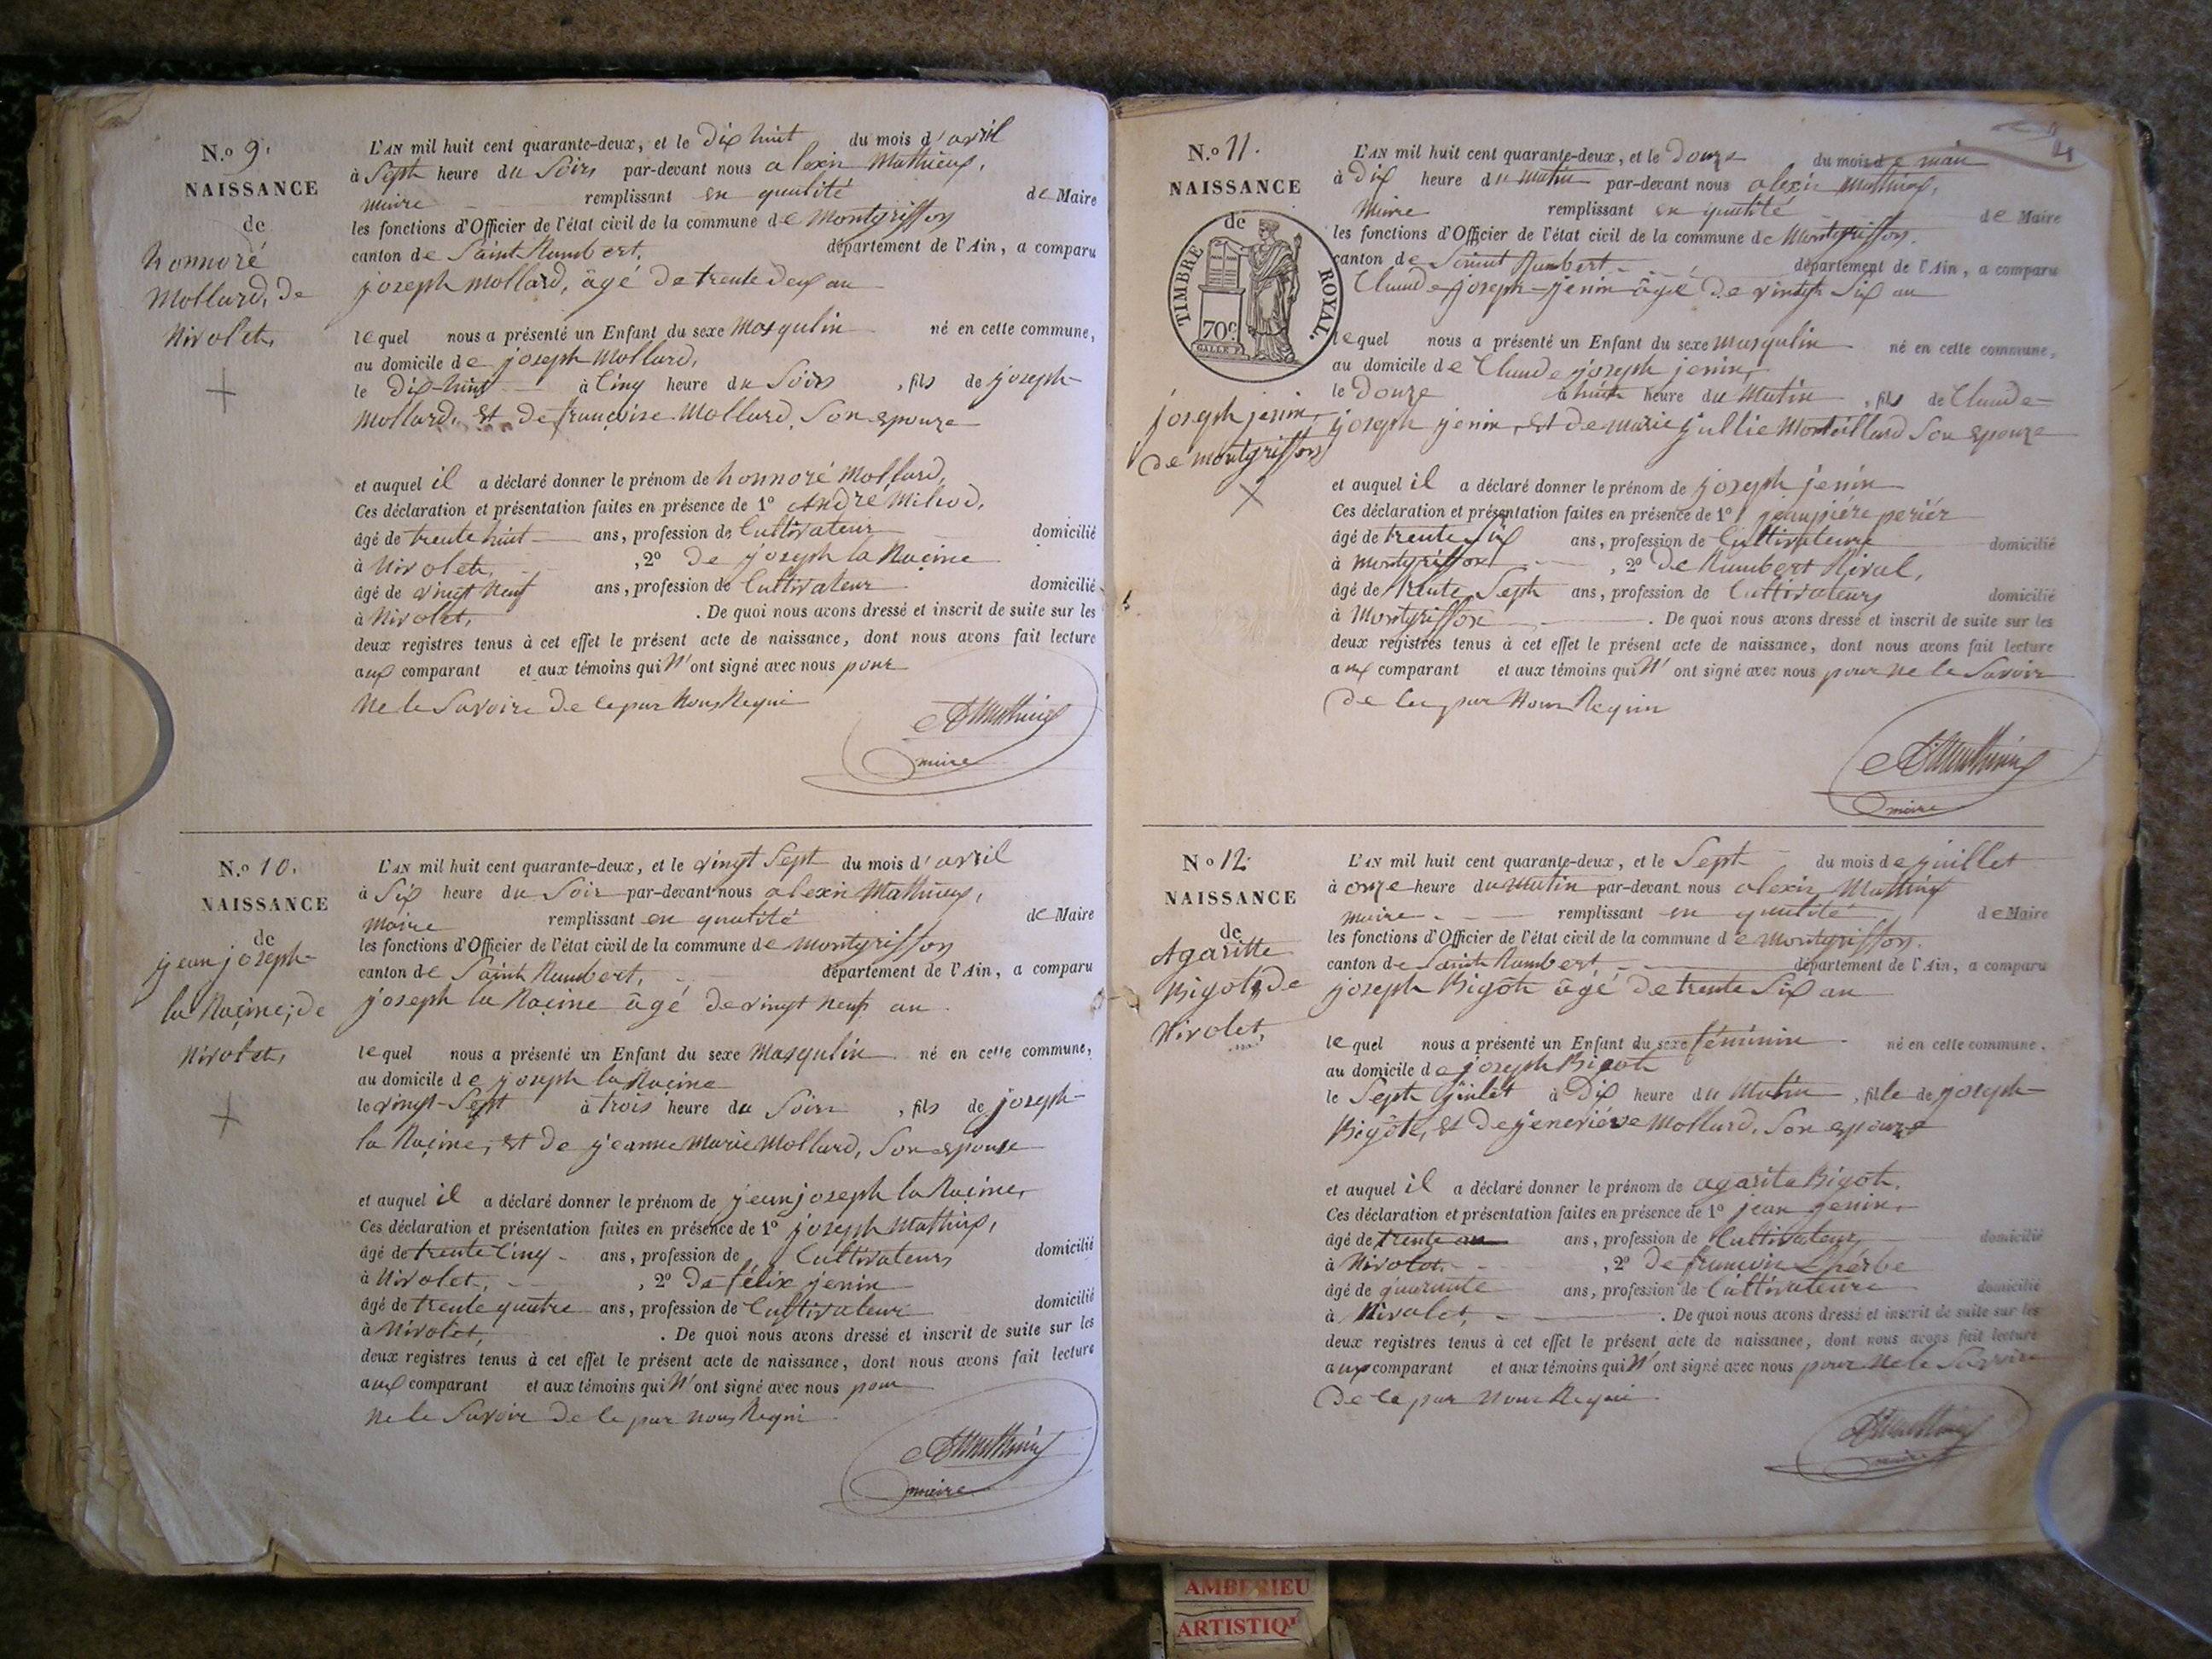 N.o 9.
NAISSANCE
de
honnoré
Mollard, de
Nivolet,
L'AN mil huit cent quarante-deux, et le Dix huit du mois d'avril
à Sept heure du Soir par-devant nous alexis Mathieux,
maire remplissant en qualité de Maire
les fonctions d'Officier de l'état civil de la commune de montgriffon
canton de Saint Rambert, département de l'Ain, a comparu
joseph mollard, âgé de trente deux an
lequel nous a présenté un Enfant du sexe masqulin né en cette commune,
au domicile de joseph Mollard,
le dix-huit à Cinq heure du Soir , fils de joseph
Mollard, et de françoise Mollard, Son epouze
et auquel il a déclaré donner le prénom de honnoré Mollard,
Ces déclaration et présentation faites en présence de 1o André Milliod,
âgé de trente huit ans, profession de Cultivateur domicilié
à Nivolet, , 2o De joseph la Raçine
âgé de vingt neuf ans, profession de Cultivateur domicilié
à Nivolet, . De quoi nous avons dressé et inscrit de suite sur les
deux registres tenus à cet effet le présent acte de naissance, dont nous avons fait lecture
aux comparant et aux témoins qui N'ont signé avec nous pour
ne le Savoire de ce par nous Requi
Mathieux
maire
N.o 10.
NAISSANCE
de
jean joseph
la Raçine, de
Nivolet,
L'AN mil huit cent quarante-deux, et le vingt Sept du mois d'avril
à Six heure du Soir par-devant nous alexis Mathieux,
maire remplissant en qualité de Maire
les fonctions d'Officier de l'état civil de la commune de montgriffon
canton de Saint Rambert, département de l'Ain, a comparu
joseph la Raçine âgé de vingt neuf an
lequel nous a présenté un Enfant du sexe Masqulin né en cette commune,
au domicile de joseph la Raçine
le vingt-Sept à trois heure du Soir , fils de joseph
la Raçine, et de jeanne Marie Mollard, Son epouse
et auquel il a déclaré donner le prénom de jean joseph la Raçine,
Ces déclaration et présentation faites en présence de 1o joseph Mathieux,
âgé de trente Cinq ans, profession de Cultivateur domicilié
à Nivolet, , 2o De félix jenin
âgé de trente quatre ans, profession de Cultivateur domicilié
à Nivolet, . De quoi nous avons dressé et inscrit de suite sur les
deux registres tenus à cet effet le présent acte de naissance, dont nous avons fait lecture
aux comparant et aux témoins qui N'ont signé avec nous pour
ne le Savoir de ce par nous Requi
Mathieux
maire
N.o 11.
NAISSANCE
de
TIMBRE ROYAL.
70c.
joseph jenin,
de montgriffon
L'AN mil huit cent quarante-deux, et le Douze du mois de mai
à Dix heure du Matin par-devant nous alexis Mathieux,
Maire remplissant en qualité de Maire
les fonctions d'Officier de l'état civil de la commune de Montgriffon.
canton de Saint Rambert département de l'Ain, a comparu
Claude joseph jenin âgé de vingt Six an
lequel nous a présenté un Enfant du sexe masqulin né en cette commune,
au domicile de Claude joseph jenin,
le Douze à huit heure du Matin , fils de Claude
joseph jenin, et de marie jullie Monteillard Son epouze
et auquel il a déclaré donner le prénom de joseph jenin
Ces déclaration et présentation faites en présence de 1o jeanpiére periér
âgé de trente Six ans, profession de Cultivateur domicilié
à Montgriffon , 2o De Rambert Rival,
âgé de trente Sept ans, profession de Cultivateur domicilié
à Montgriffon . De quoi nous avons dressé et inscrit de suite sur les
deux registres tenus à cet effet le présent acte de naissance, dont nous avons fait lecture
aux comparant et aux témoins qui N'ont signé avec nous pour ne le Savoir
de ce par nous Requi
Mathieux
maire
N.o 12.
NAISSANCE
de
Agaritte
Bigot, de
Nivolet,
L'AN mil huit cent quarante-deux, et le Sept du mois de juillet
à onze heure du Matin par-devant nous alexis Mathieux
maire remplissant en qualité de Maire
les fonctions d'Officier de l'état civil de la commune de Montgriffon.
canton de Saint Rambert département de l'Ain, a comparu
joseph Bigot âgé de trente Six an
lequel nous a présenté un Enfant du sexe féminin né en cette commune,
au domicile de joseph Bigot
le Sept juilet à Dix heure du Matin , fille de joseph
Bigôt, et de jeneviéve Mollard, Son epouze
et auquel il a déclaré donner le prénom de agarita Bigot,
Ces déclaration et présentation faites en présence de 1o jean jenin,
âgé de trente an ans, profession de Cultivateur domicilié
à Nivolet. , 2o De françois Lhérbe
âgé de quarante ans, profession de Cultivateure domicilié
à Nivolet, . De quoi nous avons dressé et inscrit de suite sur les
deux registres tenus à cet effet le présent acte de naissance, dont nous avons fait lecture
aux comparant et aux témoins qui N'ont signé avec nous pour ne le Savoire
de ce par nous Requi
Mathieux
maire
AMBERIEU
ARTISTIQ